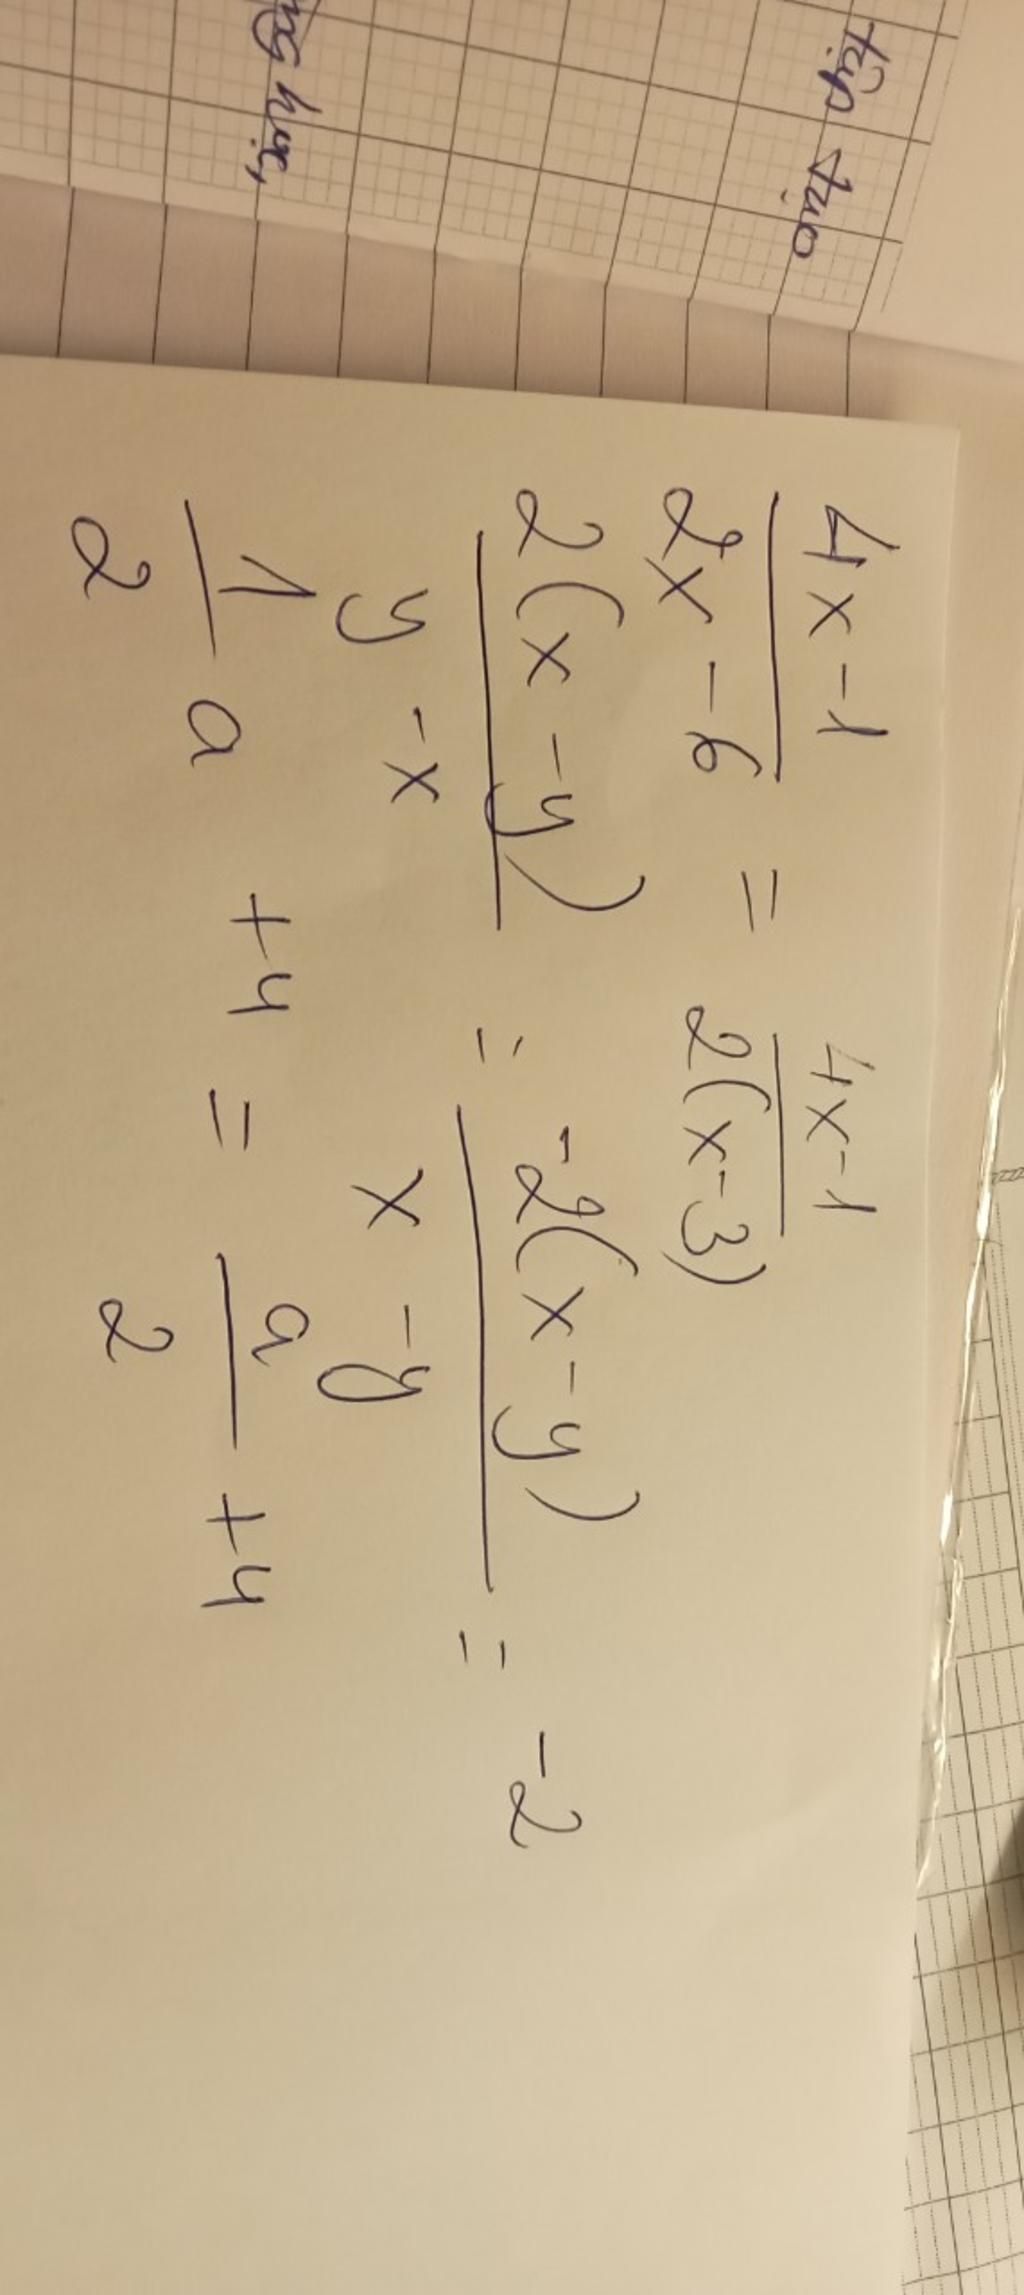 tiếp tục
ng học,
\frac{4x-1}{2x-6} = \frac{4x-1}{2(x-3)}
\frac{2(x-y)}{y-x} = \frac{-2(x-y)}{x-y} = -2
\frac{1}{2}a + 4 = \frac{a}{2} + 4